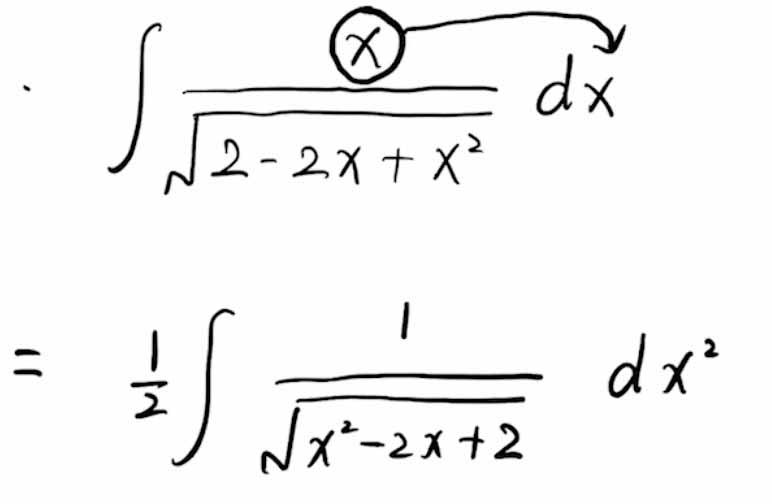 ∫ x / √(2 - 2x + x²) dx
= 1/2 ∫ 1 / √(x² - 2x + 2) dx²